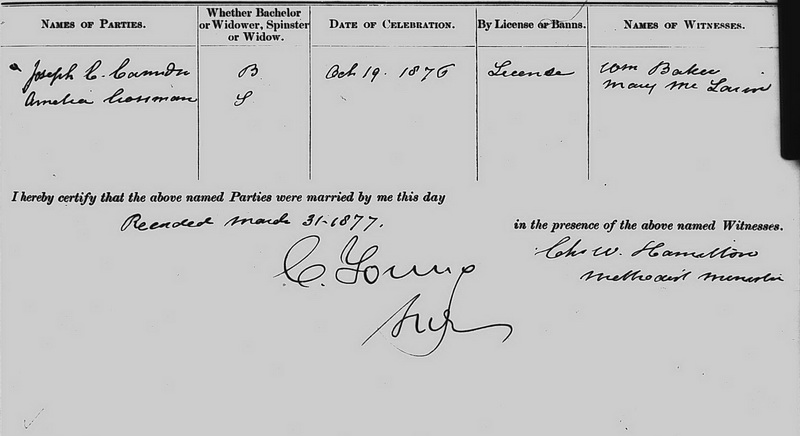 NAMES OF PARTIES.
Whether Bachelor
or Widower, Spinster
or Widow.
DATE OF CELEBRATION.
By License or Banns.
NAMES OF WITNESSES.
Joseph C.
B
Oct 19. 1876
License
Wm Baker
Amelia
S
Mary Mc
I hereby certify that the above named Parties were married by me this day
Recorded March 31-1877.
in the presence of the above named Witnesses.
C. Young
Chs W. Hamilton
Methodist Minister